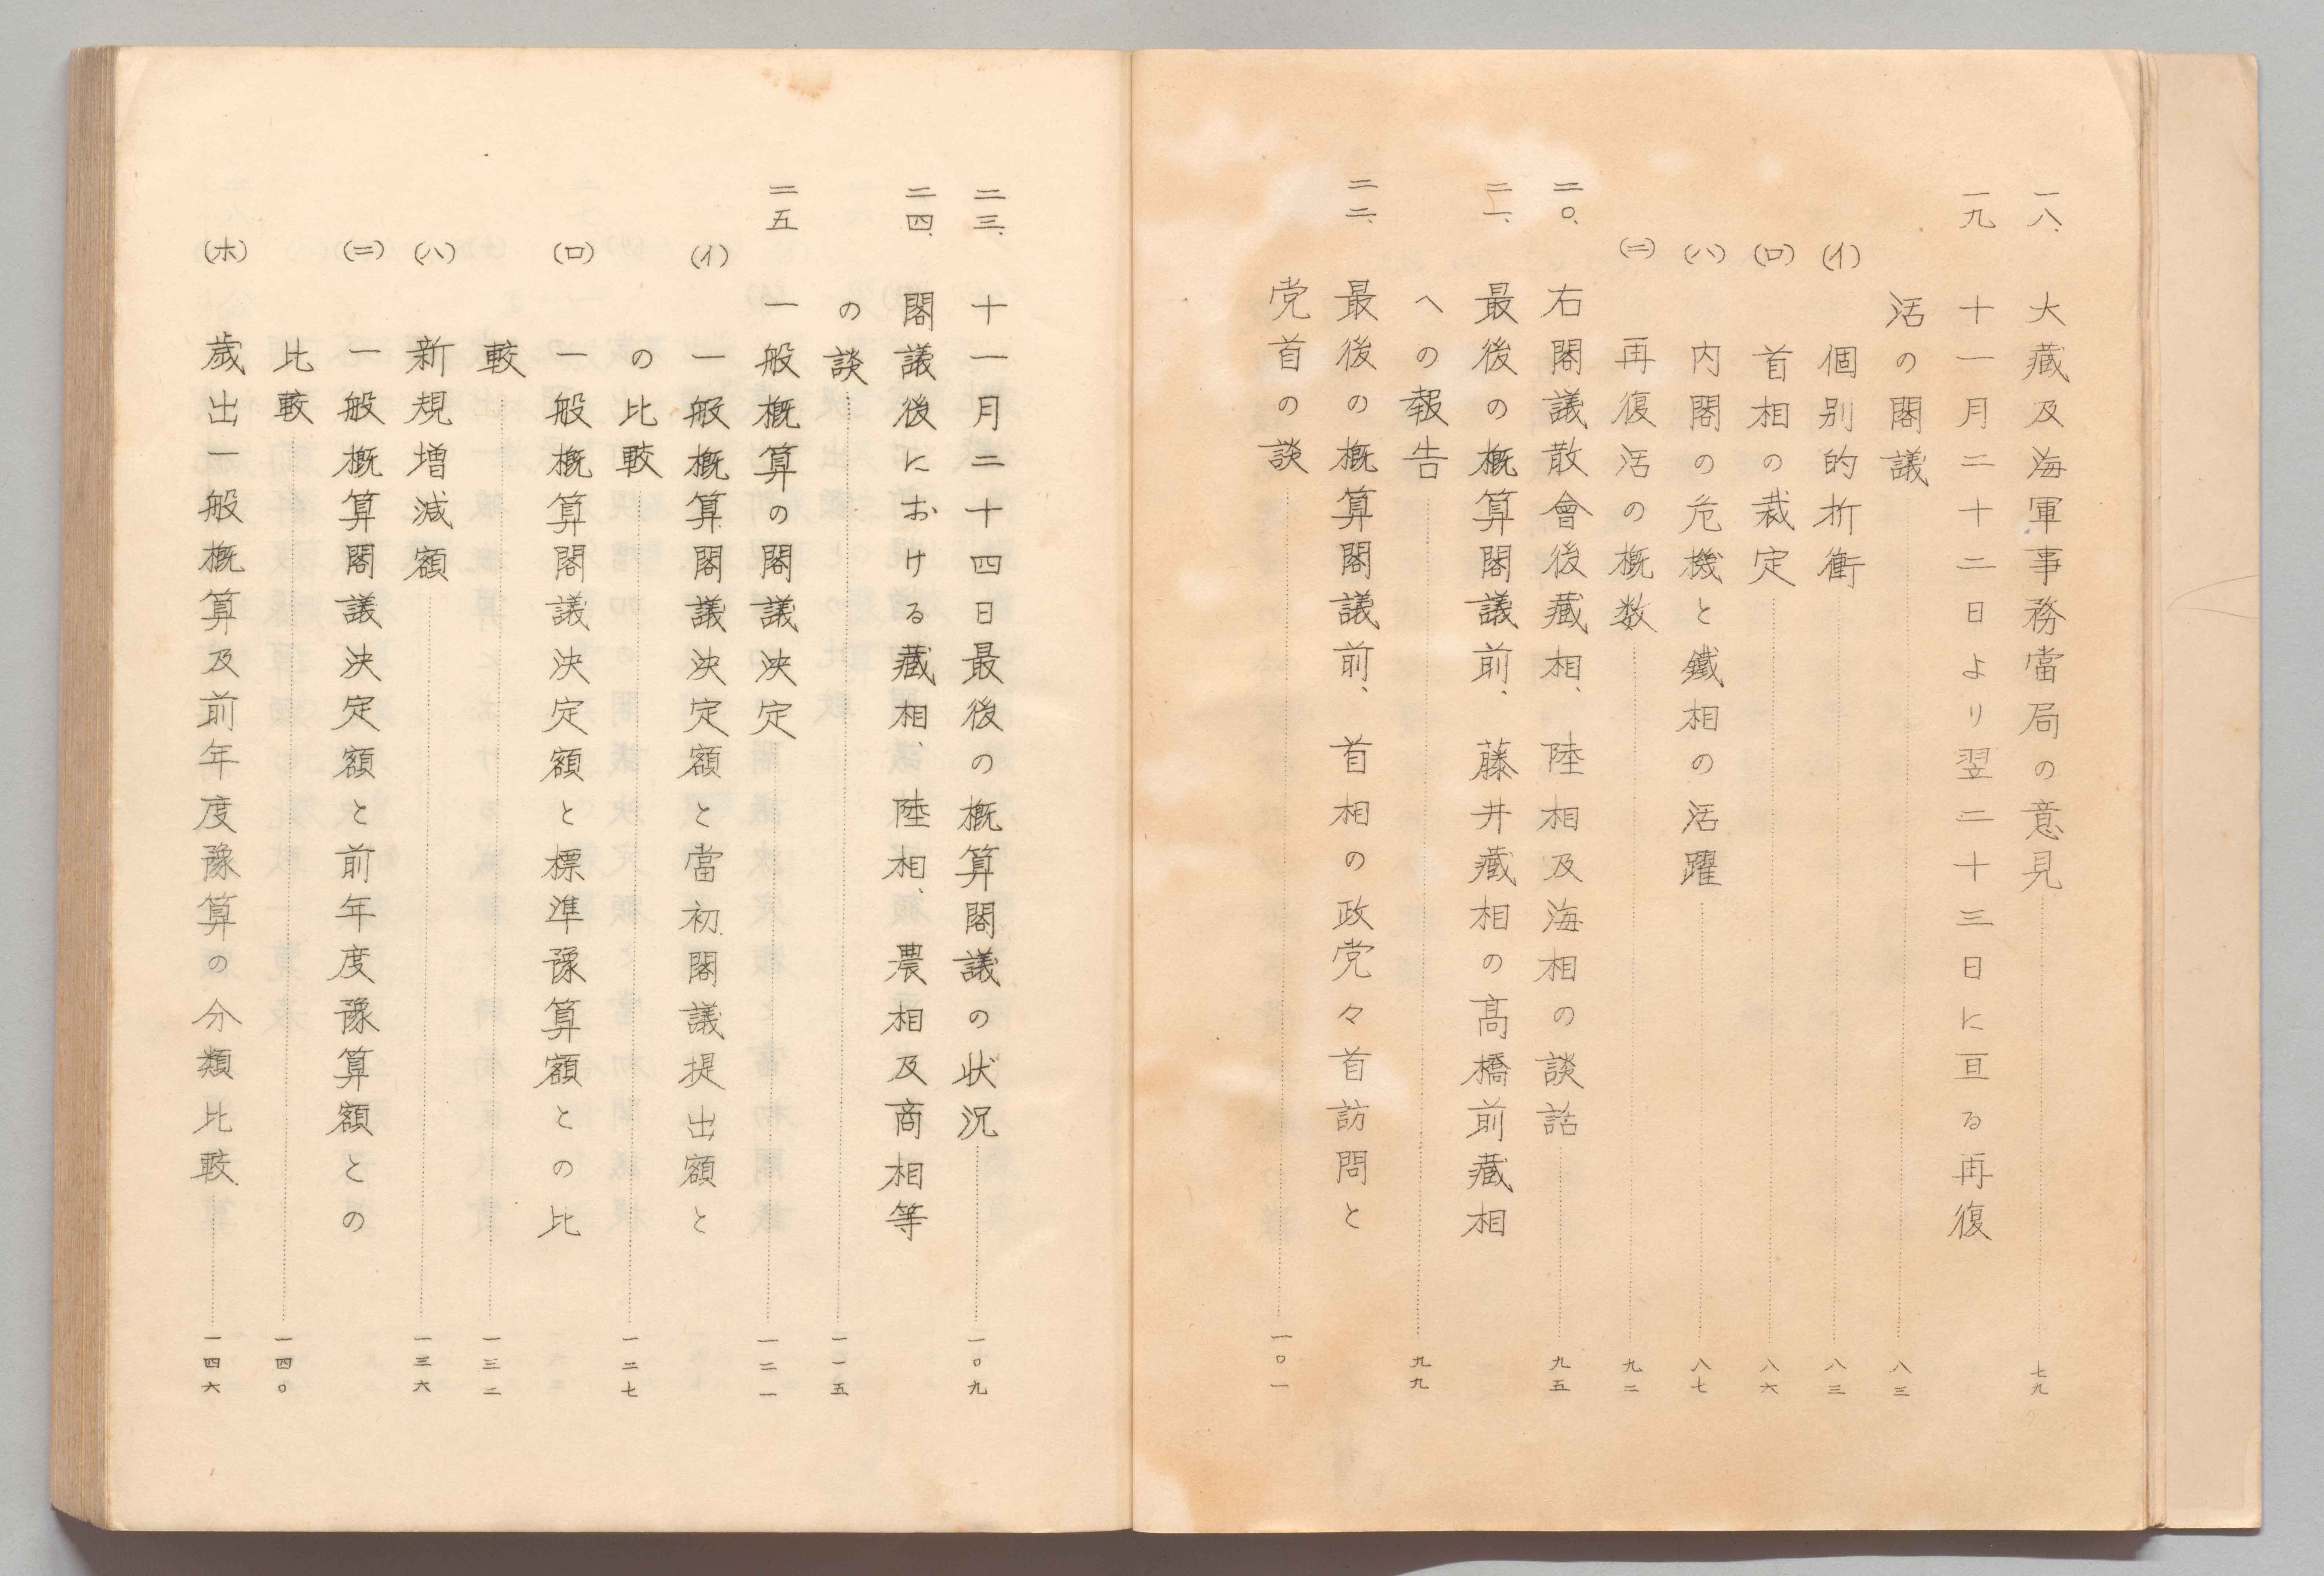 一八、大藏及海軍事務當局の意見 七九
一九 十一月二十二日より翌二十三日に亘る再復
活の閣議 八三
(イ) 個別的折衝 八三
(ロ) 首相の裁定 八六
(ハ) 内閣の危機と鐵相の活躍 八七
(ニ) 再復活の概数 九二
二〇、右閣議散會後藏相、陸相及海相の談話 九五
二一、最後の概算閣議前、藤井藏相の髙橋前藏相
への報告 九九
二二、最後の概算閣議前、首相の政党々首訪問と
党首の談 一〇一
二三、十一月二十四日最後の概算閣議の状況 一〇九
二四、閣議後における藏相、陸相、農相及商相等
の談 一一五
二五 一般概算の閣議決定 一二一
(イ) 一般概算閣議決定額と當初閣議提出額と
の比較 一二七
(ロ) 一般概算閣議決定額と標準豫算額との比
較 一三二
(ハ) 新規増減額 一三六
(ニ) 一般概算閣議決定額と前年度豫算額との
比較 一四〇
(ホ) 歳出一般概算及前年度豫算の分類比較 一四六